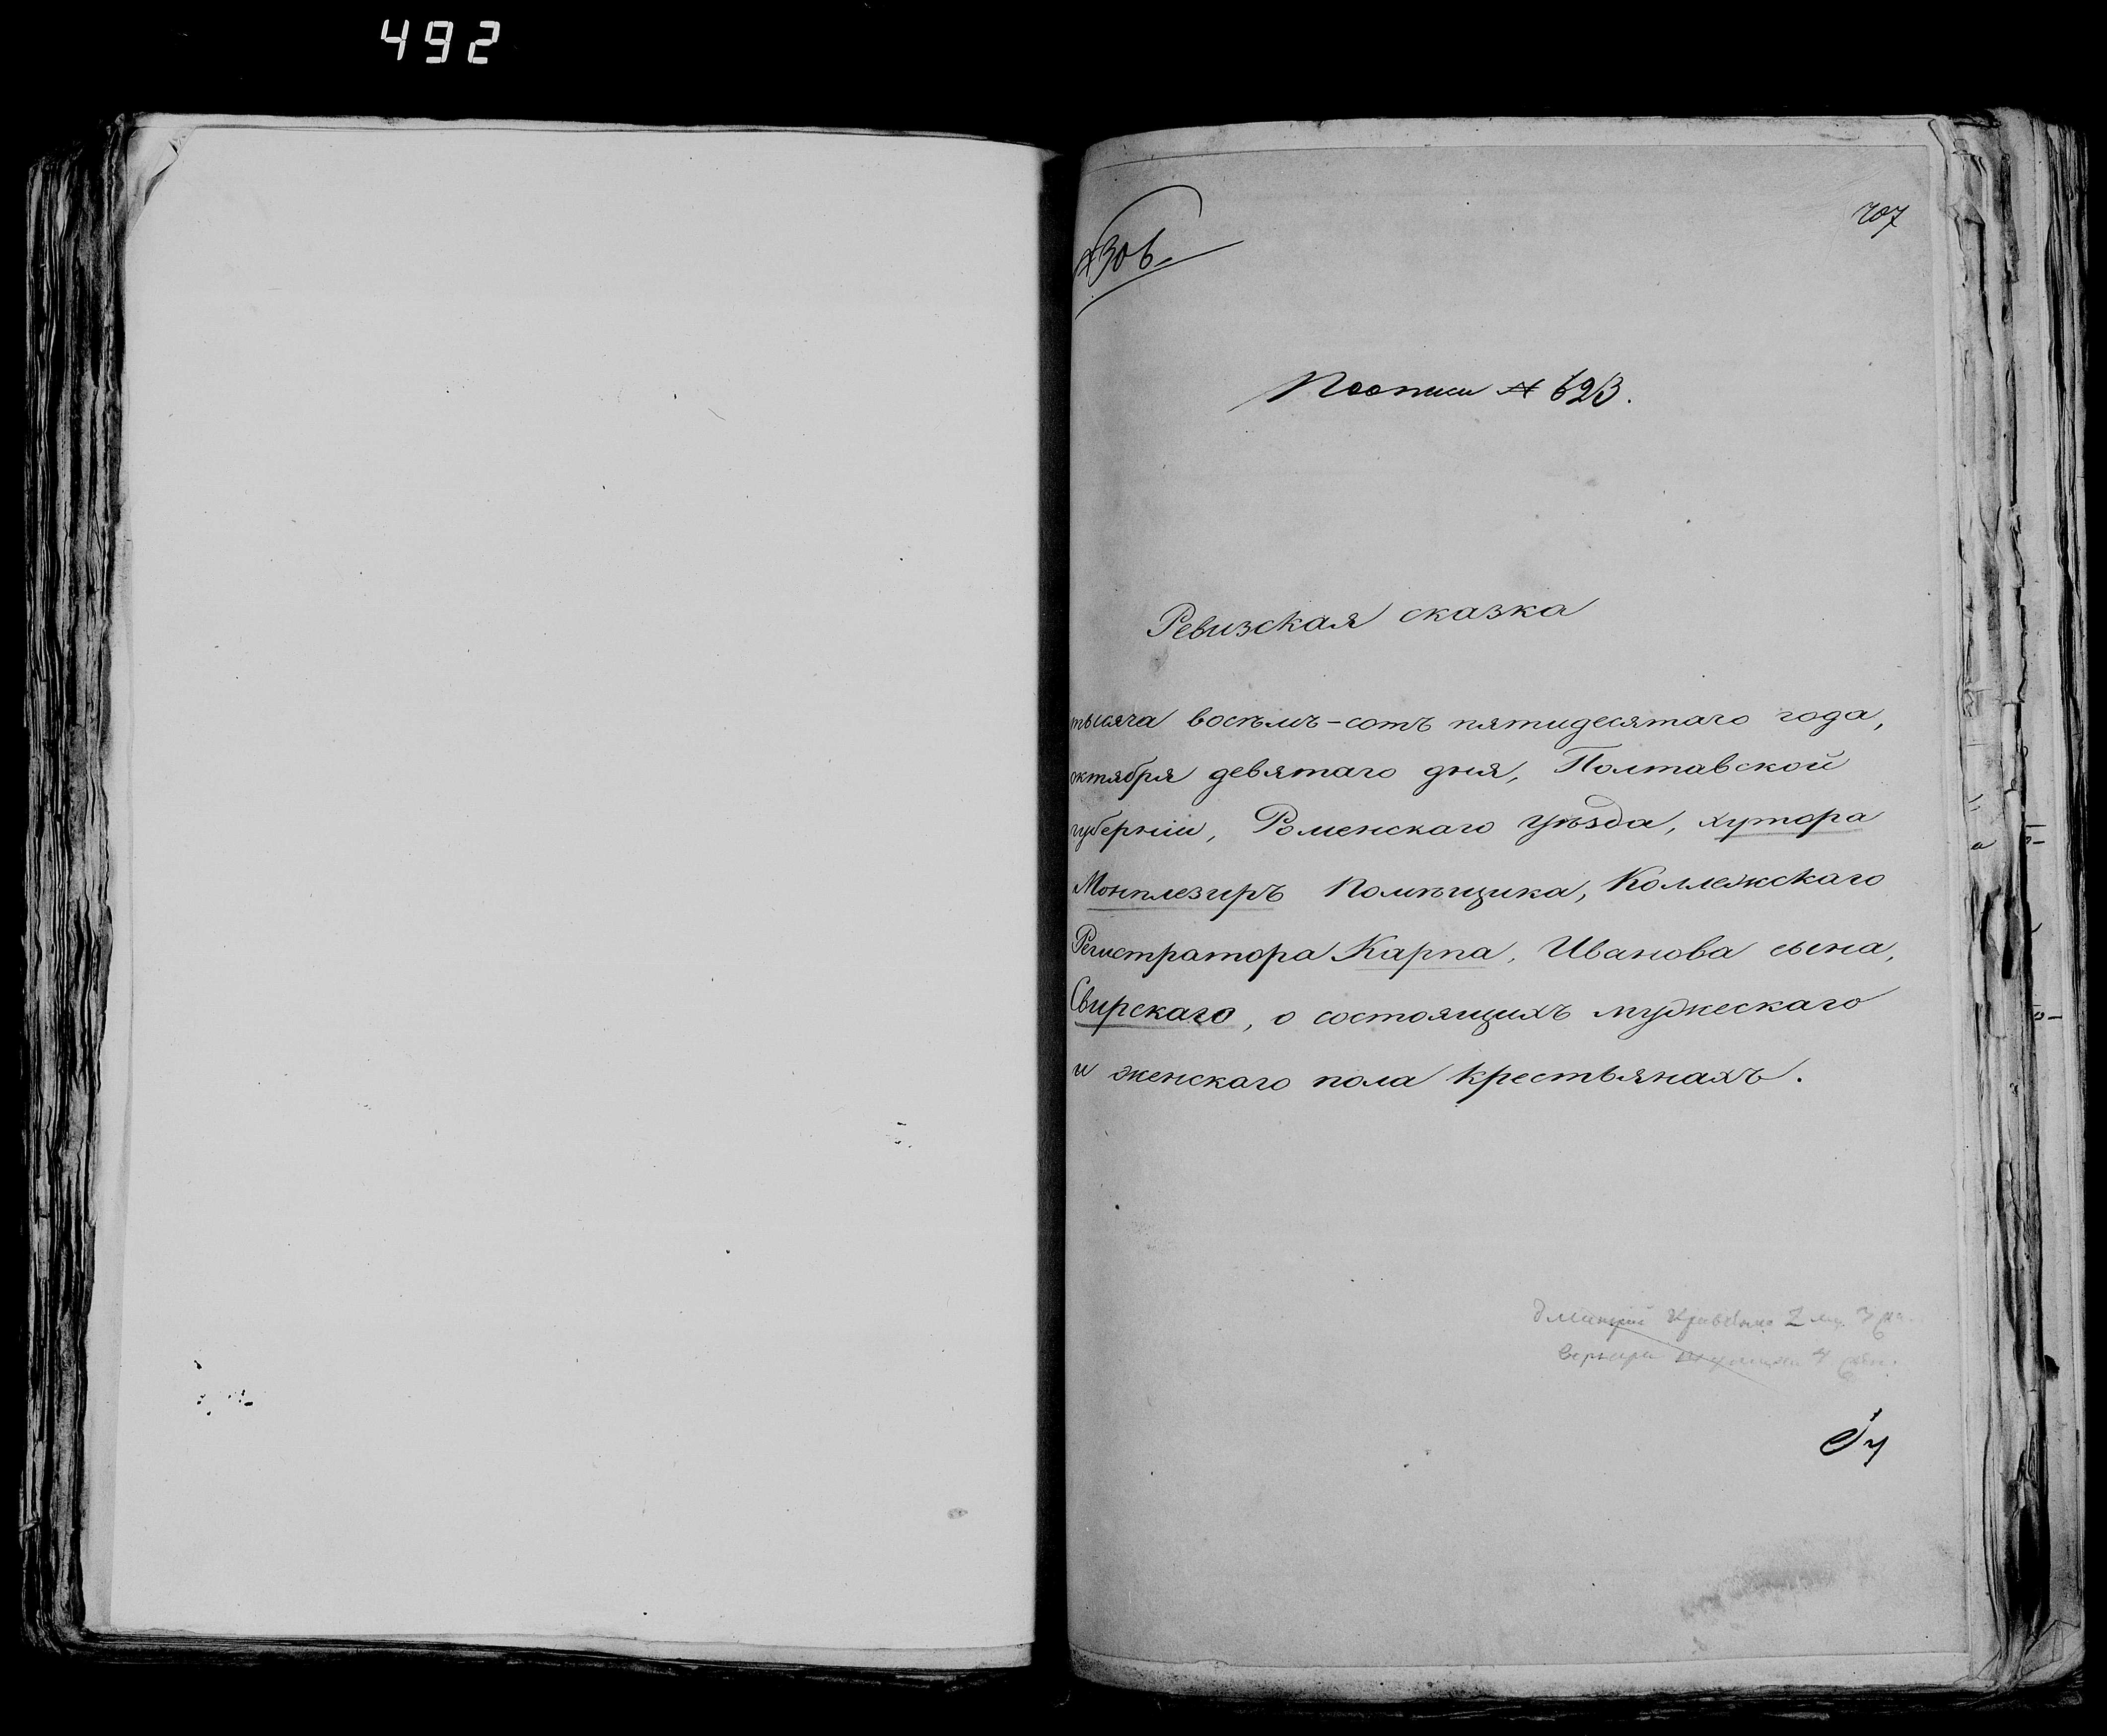 492
707
№ 306.
По описи № 623.
Ревизская сказка
тысяча восѣмъ-сотъ пятидесятаго года,
октября девятаго дня, Полтавской
губерніи, Роменскаго уѣзда, хутора
Монплезиръ Помѣщика, Коллежскаго
Регистратора Карпа, Иванова сына,
Свирскаго, о состоящихъ мужескаго
и женскаго пола крестьянахъ.
Дмитрій